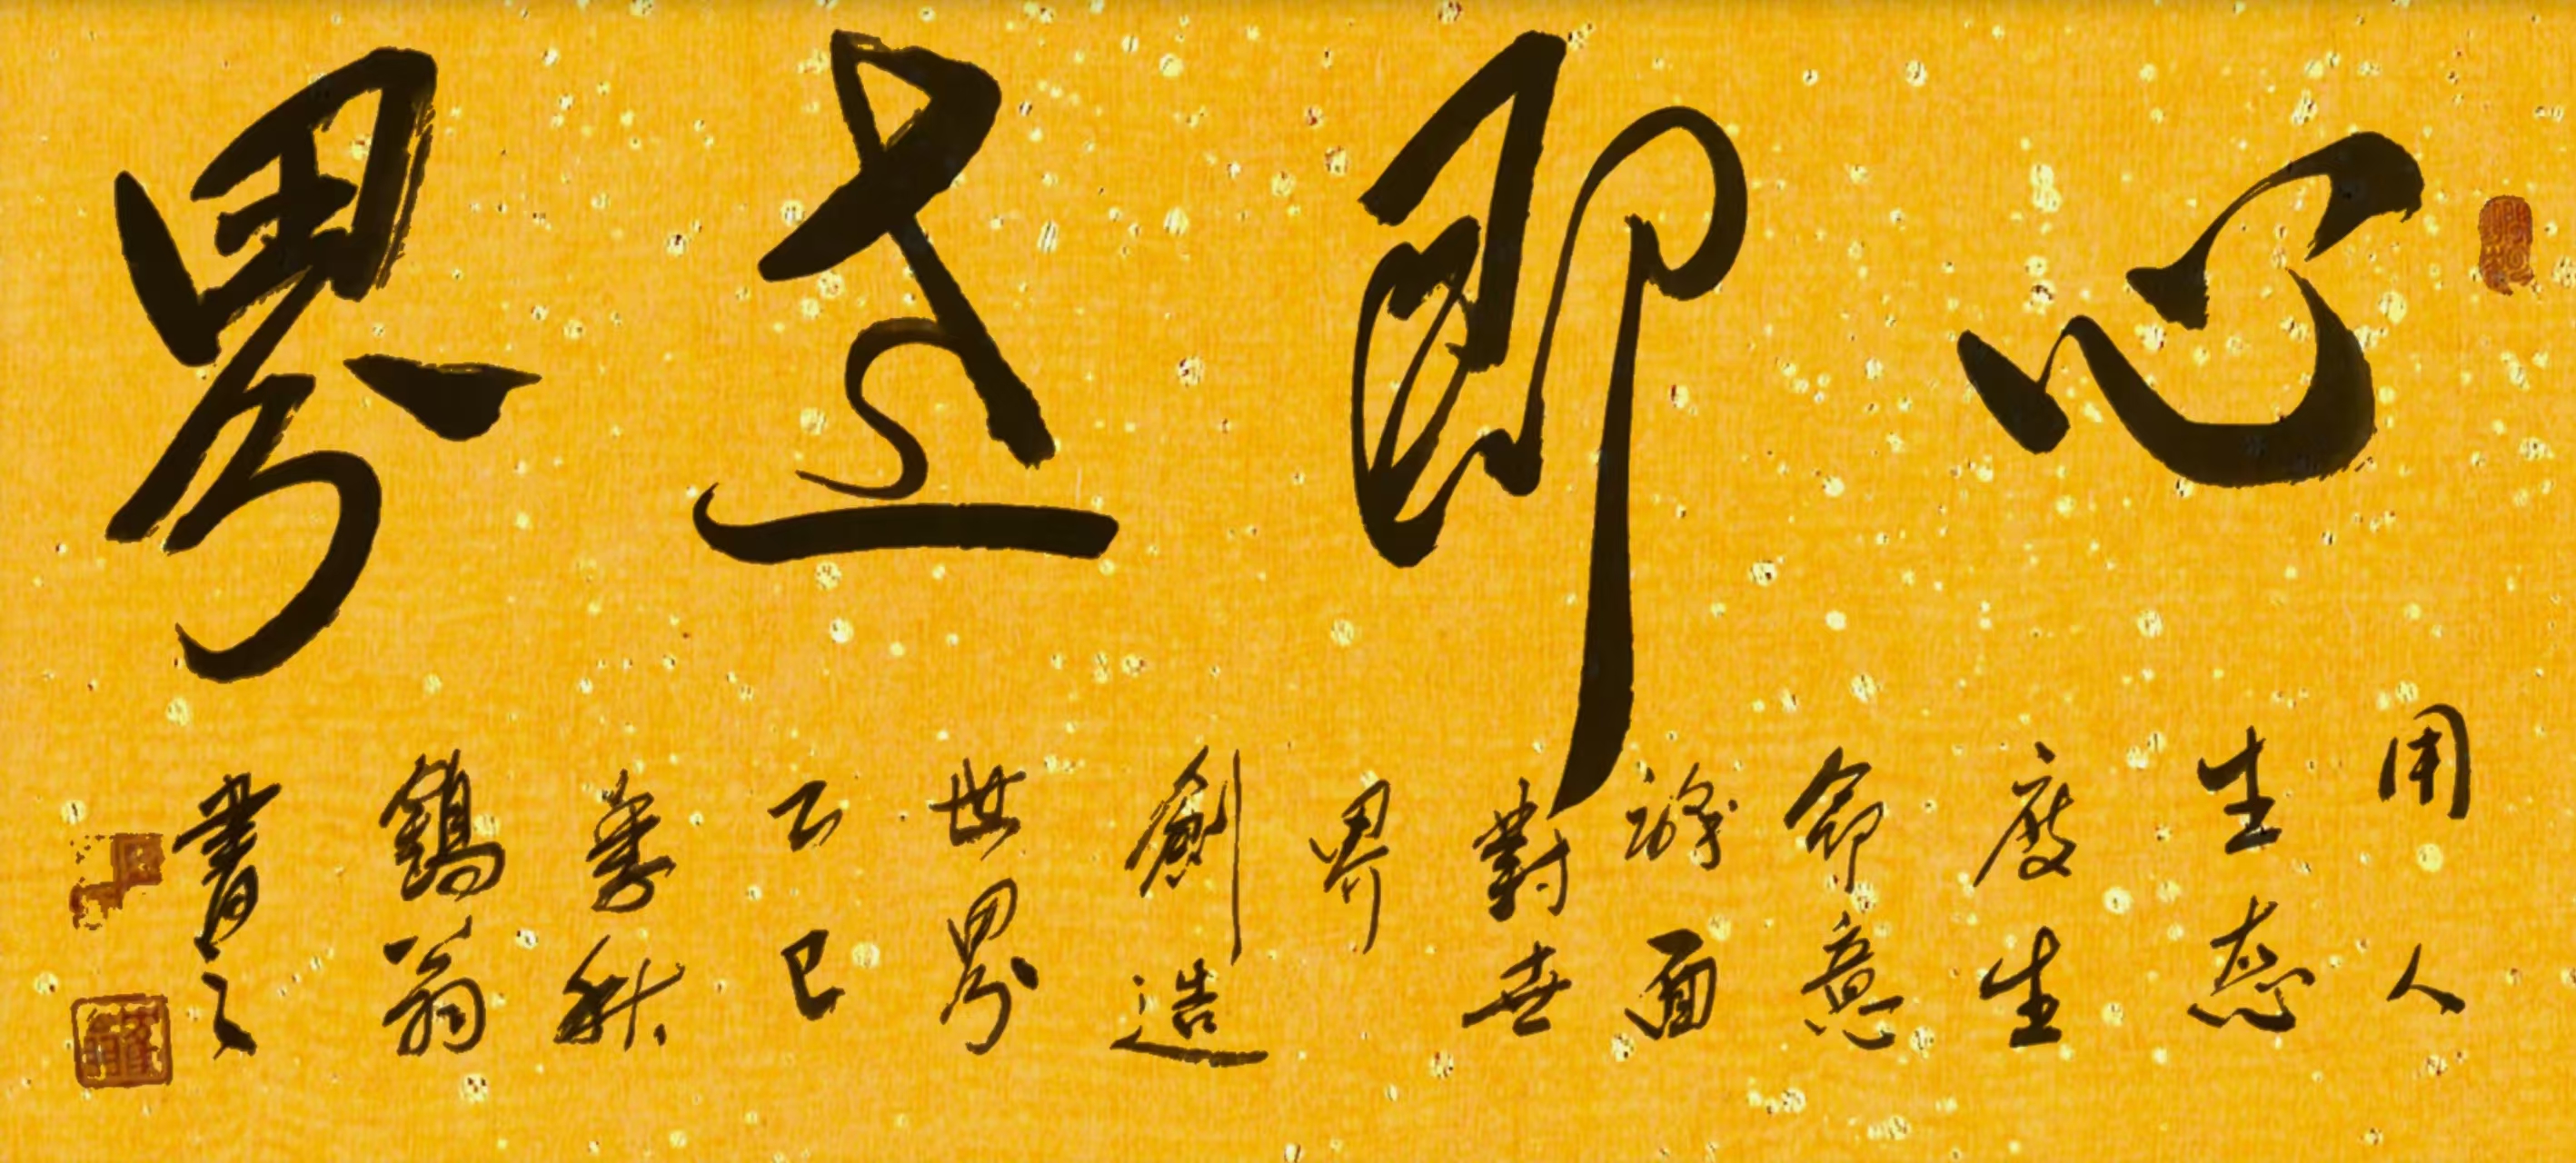 心即世界
用人
生态
度生
命意
識面
對世
界
創造
世界
乙巳
季秋
鶴翁
書之